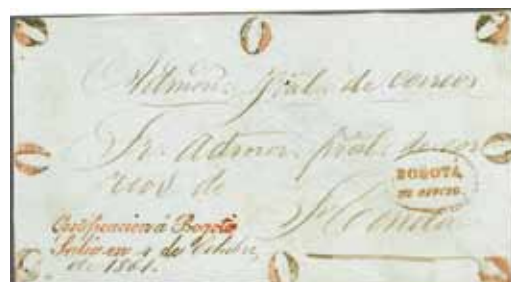 Admon. pral. de correos
Sr. Admor. pral. de cor
reos de
Honda
BOGOTÁ
DE OFICIO
Certificacion á Bogotá
Salió en 4 de Octubre
de 1861.